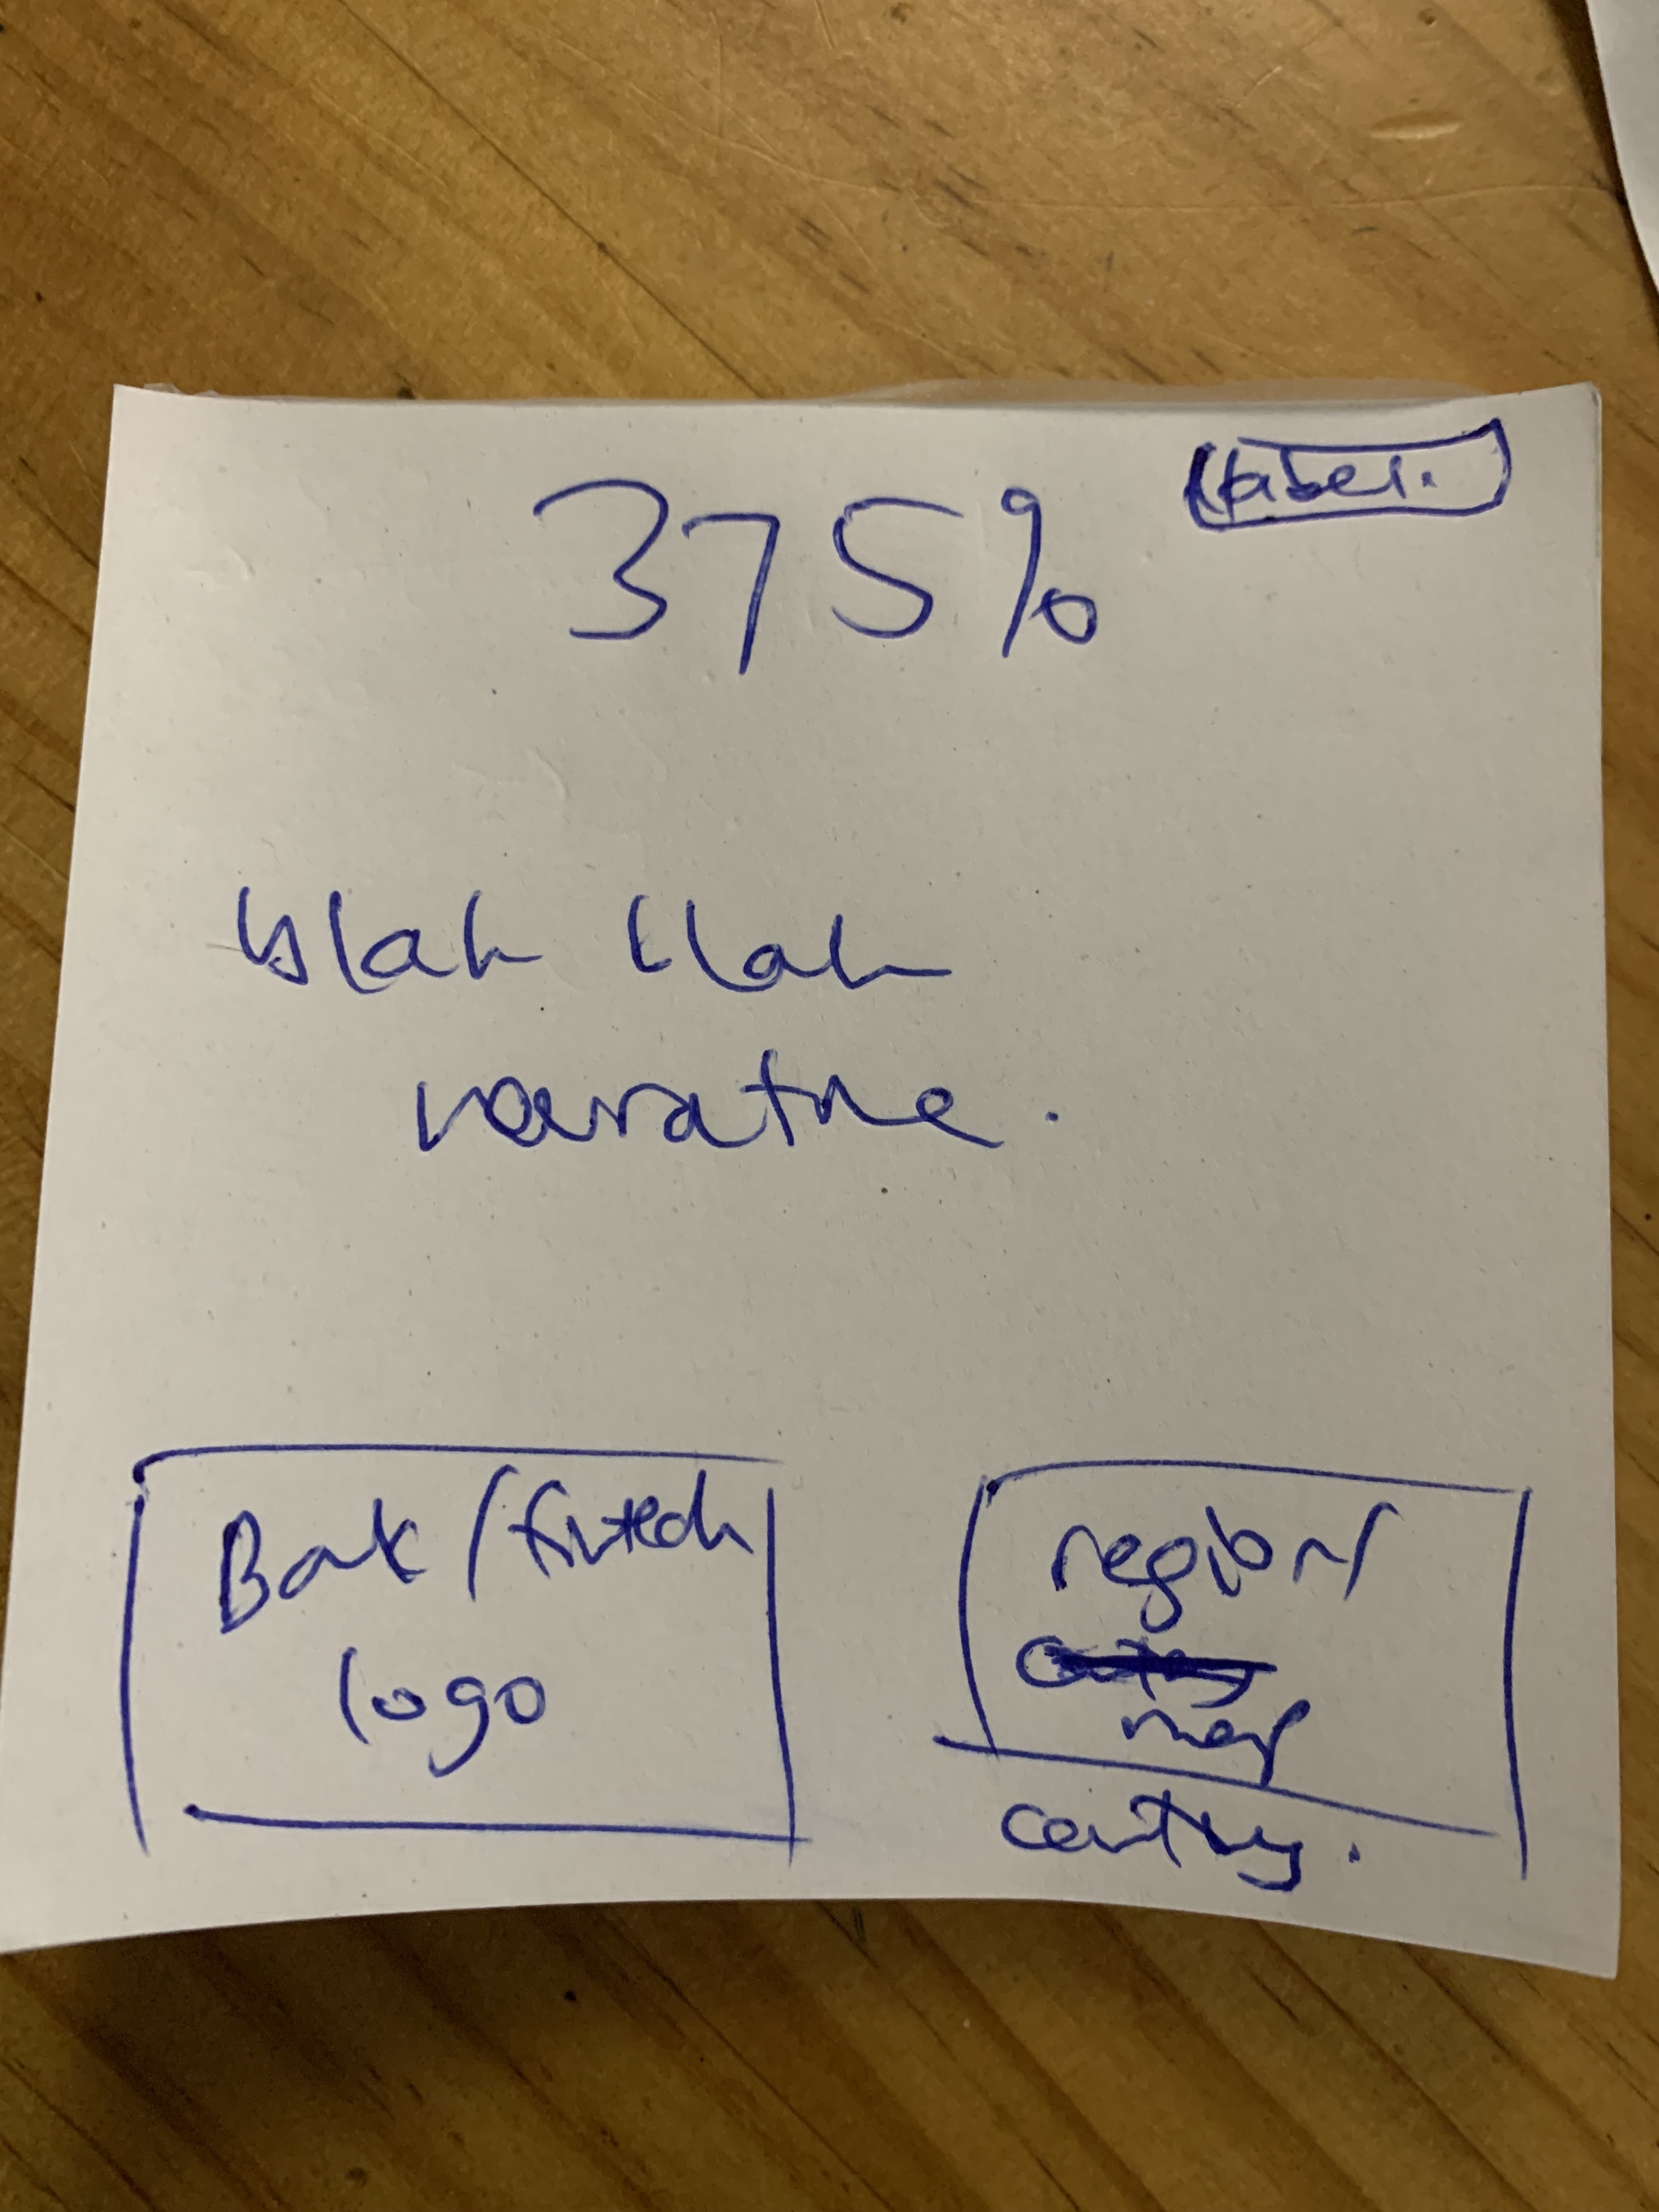 label.
375%
blah blah
narrative.
Bank/fintech
logo
region
map
country.